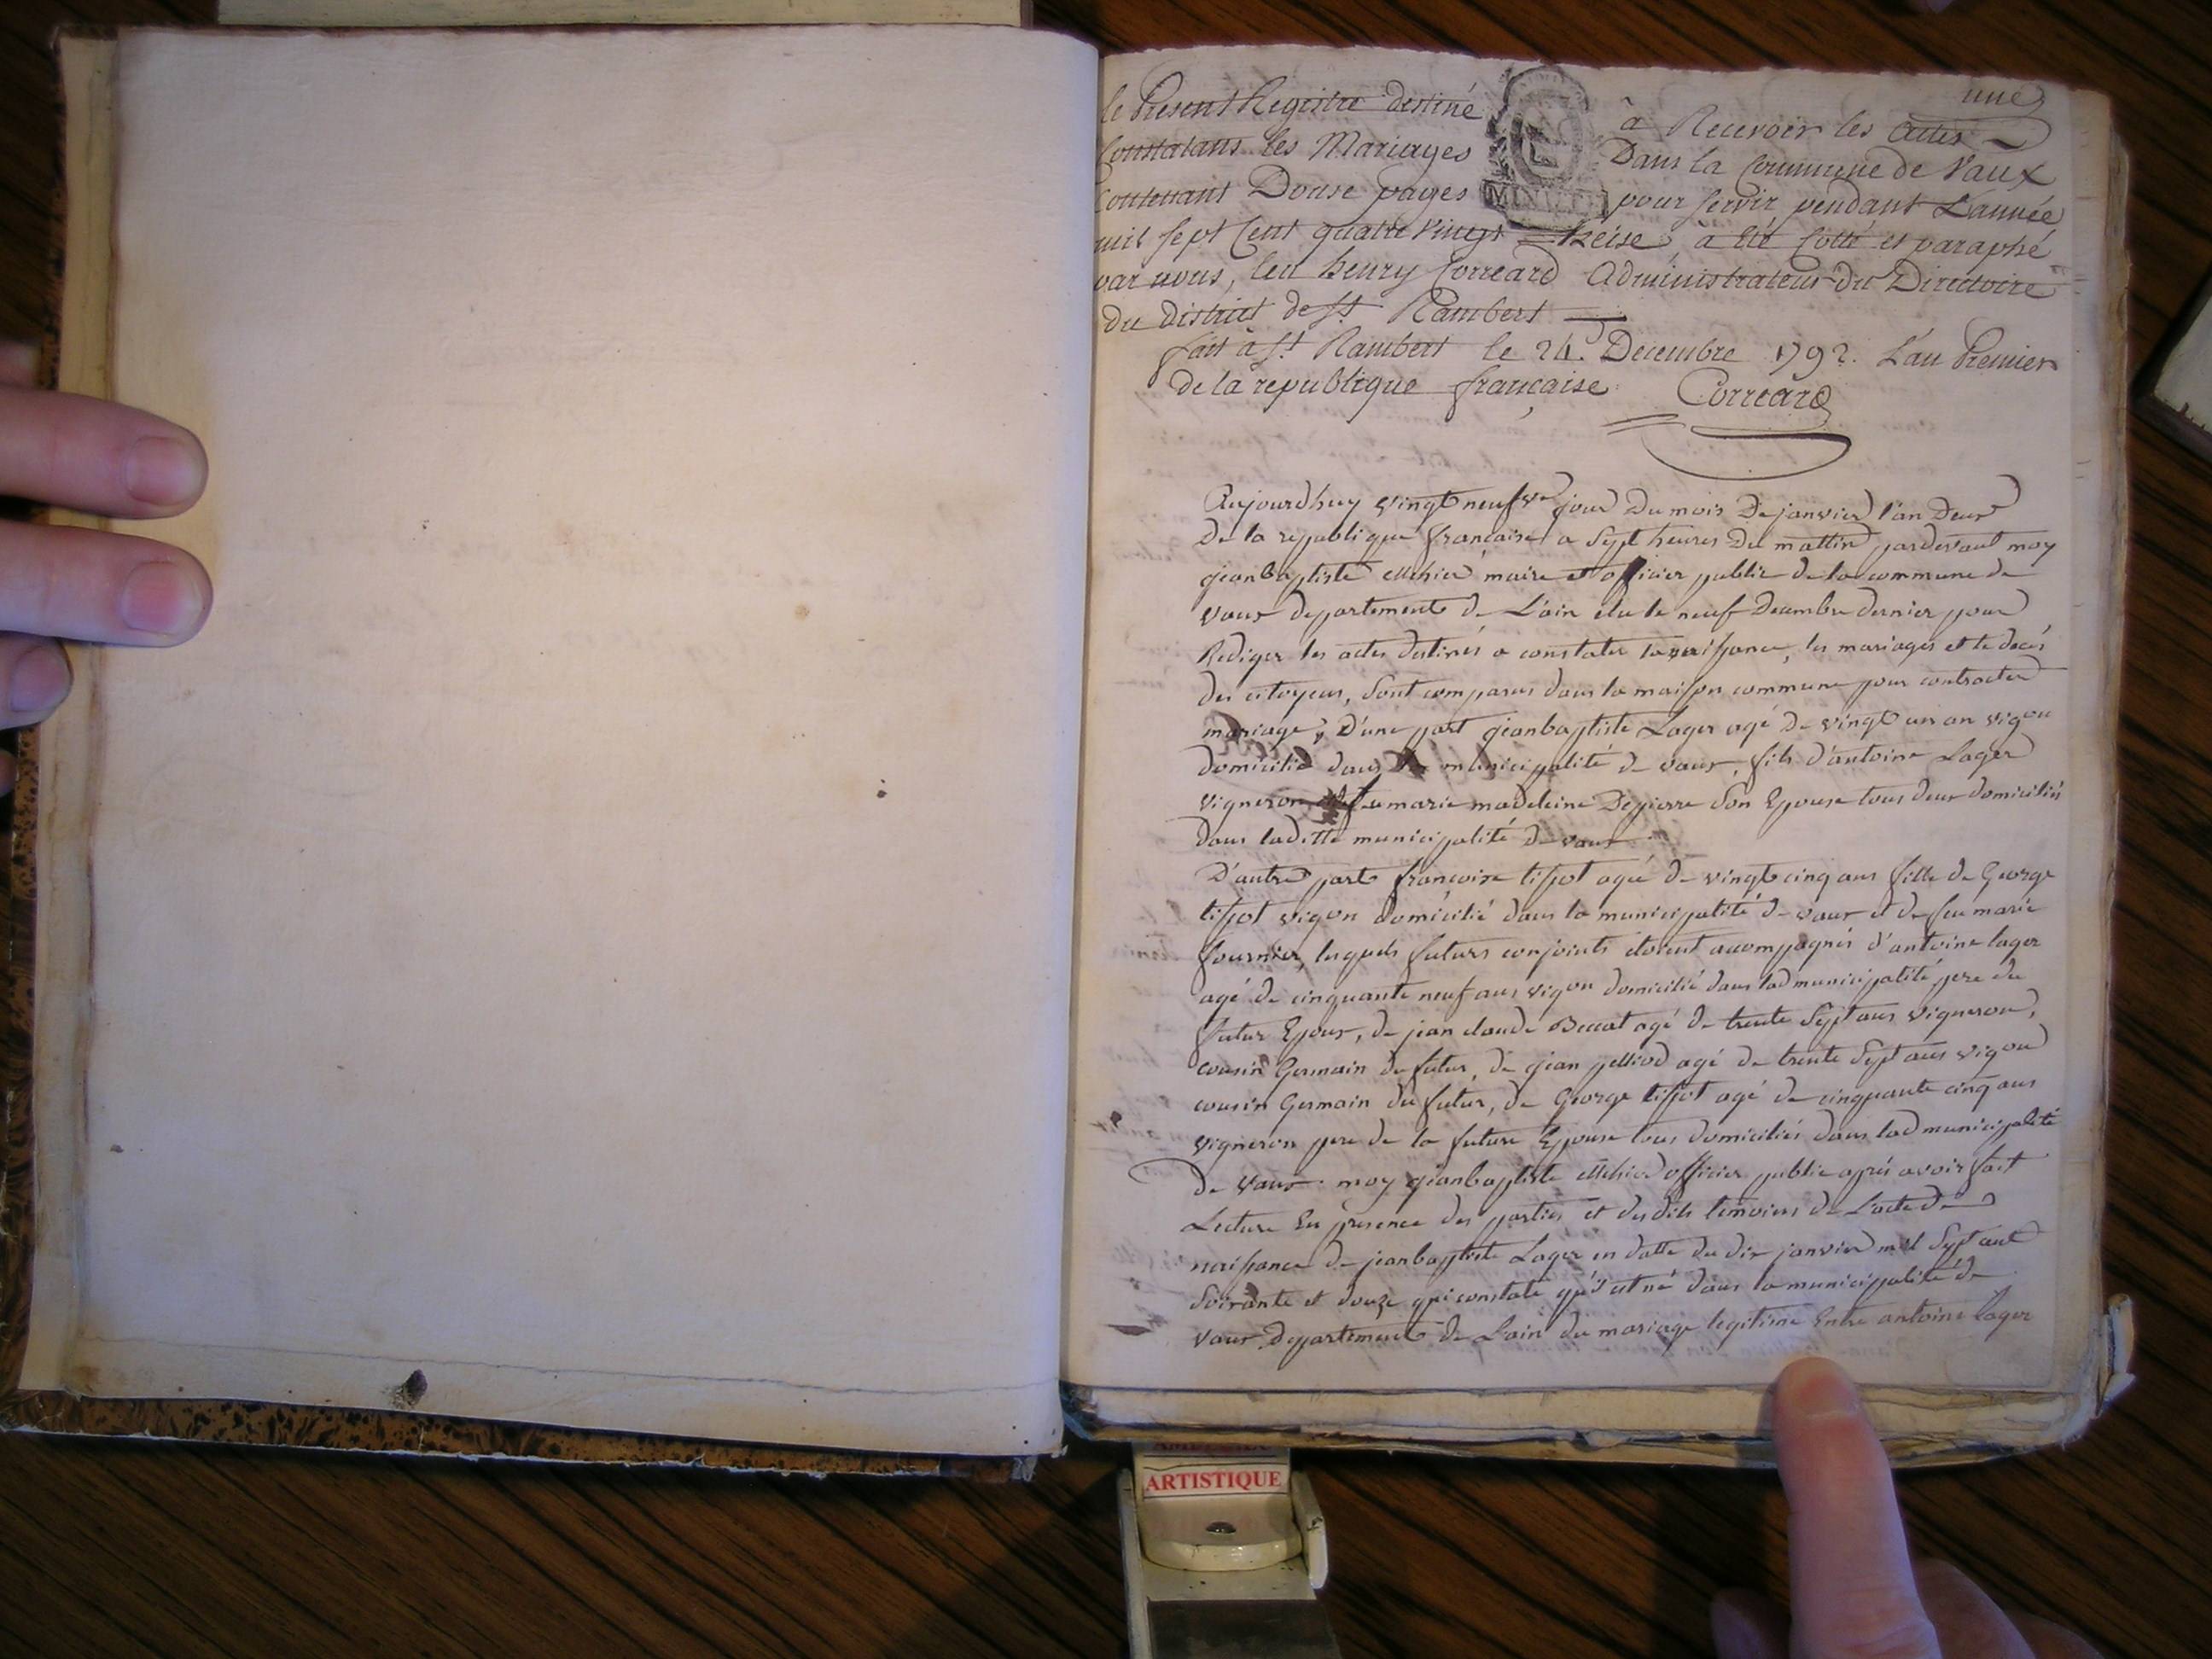 une
le Present Registre destiné à Recevoir les actes
Constatans les Mariages Dans la Commune de Vaux
Contenant Douse pages pour servir pendant L'année
mil sept Cent quatre vingt treise, à été Cotté et paraphé
par nous, leu henry Correard Administrateur du Directoire
du District de St Rambert
fait à St Rambert le 24. Decembre 1792. L'an Premier
de la republique française Correard
MINUTE
Aujourdhuy vingt neufve jour du mois de janvier l'an deux
de la republique française a Sept heures du mattin pardevant moy
jeanbaptiste maire et officier public de la commune de
vaux departement de L'ain elu le neuf decembre dernier pour
Rediger les actes destinés a constater la naissance, les mariages et le decés
des citoyens, Sont comparus dans la maison commune pour contracter
mariage, D'une part jeanbaptiste Lager agé de vingt un an vigon
domicilié dans la municipalité de vaux, fils d'antoine Lager
vigneron feu marie madeleine Depierre Son Epouse tous deux domiciliés
dans laditte municipalité de vaux
D'autre part françoise tissot agée de vingt cinq ans fille de George
tissot vigon domicilié dans la municipalité de vaux et de feu marie
fournier, lesquels futurs conjoints etoient accompagnés d'antoine lager
agé de cinquante neuf ans vigon domicilié dans lad municipalité pere du
futur Epoux, de jean claude Beccat agé de trente Sept ans vigneron,
cousin Germain du futur, de jean pelliod agé de trente Sept ans vigon
cousin Germain du futur, de George tissot agé de cinquante cinq ans
vigneron pere de la future Epouse tous domiciliés dans lad municipalité
de vaux. moy jeanbaptiste officier public aprés avoir fait
Lecture En presence des parties et desdits temoins de L'acte de
naissance de jeanbaptiste Lager en datte du dix janvier mil Sept cent
Soixante et douze qui constate qu'il est né dans la municipalité de
vaux departement de Lain du mariage legitime Entre antoine lager
ARTISTIQUE